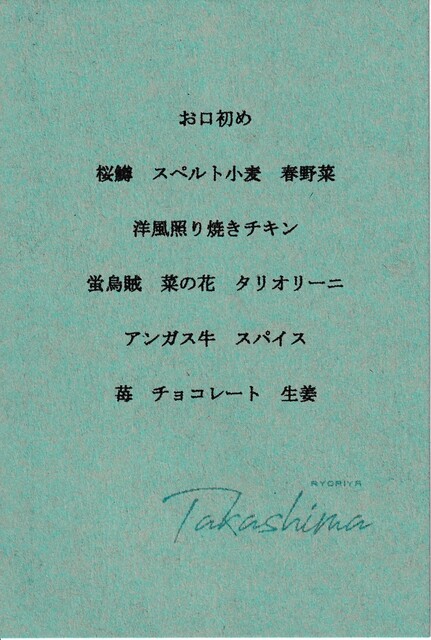 お口初め
桜鱒　スペルト小麦　春野菜
洋風照り焼きチキン
蛍烏賊　菜の花　タリオリーニ
アンガス牛　スパイス
苺　チョコレート　生姜
RYORIYA
Takashima